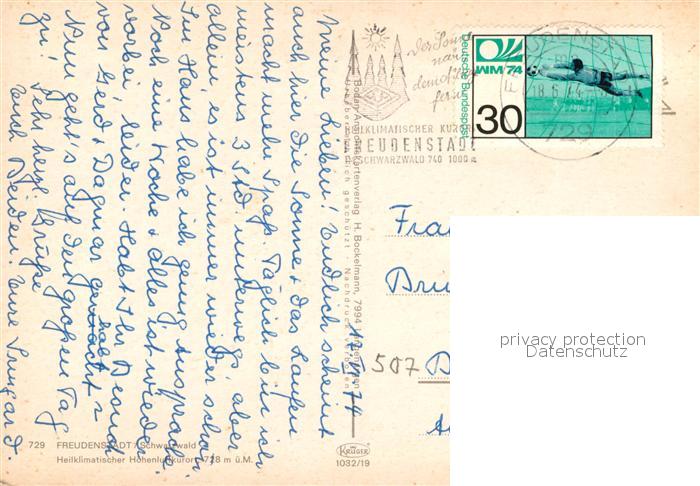 Meine Lieben! Endlich scheint
auch hier die Sonne, das Laufen
macht mehr Spaß. Täglich bin ich
meistens 3 Std. unterwegs, aber
allein es ist immer wieder schön.
Im Haus habe ich genug Aussprache.
Noch eine Woche u. alles ist wieder
vorbei leider. Habt Ihr Besuch
von Gerd Dagmar gehabt?
Nun geht's auf den großen Tag
zu! Sehr herzl. Grüße
Euch Beiden. Eure Irmgard.
729 FREUDENSTADT / Schwarzwald
Heilklimatischer Höhenluftkurort 728 m ü.M.
Bodan-Ansichtskartenverlag H. Bockelmann, 7994 Langenargen
Urheberrechtlich geschützt · Nachdruck verboten
KRÜGER
1032/19
Der Sonne
näher
dem Alltag
fern
HEILKLIMATISCHER KURORT
FREUDENSTADT
SCHWARZWALD 740 1000 m
FREUDENSTADT
18.6.74
729
Deutsche Bundespost
WM 74
30
Fra
Brü
507 B
privacy protection
Datenschutz